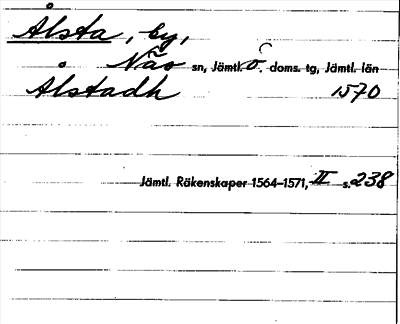 Ålsta, by,
Näs sn, Jämtl. ö. doms. tg, Jämtl. län
Ålstadh 1570
Jämtl. Räkenskaper 1564–1571, II s. 238